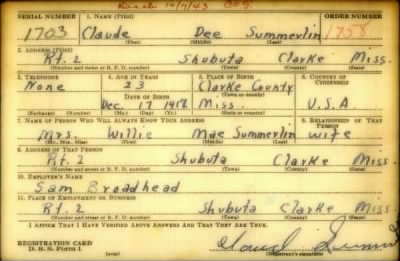 Disch 10/7/43
SERIAL NUMBER 1. NAME (Print) ORDER NUMBER
1703 Claude Dee Summerlin 1758
(First) (Middle) (Last)
2. ADDRESS (Print)
Rt. 2 Shubuta Clarke Miss.
(Number and street or R. F. D. number) (Town) (County) (State)
3. TELEPHONE 4. AGE IN YEARS 5. PLACE OF BIRTH 6. COUNTRY OF CITIZENSHIP
None 23 Clarke County
(Town or county)
DATE OF BIRTH
Dec. 17 Miss. U.S.A.
(Exchange) (Number) (Mo.) (Day) (Yr.) (State or country)
7. NAME OF PERSON WHO WILL ALWAYS KNOW YOUR ADDRESS 8. RELATIONSHIP OF THAT PERSON
Mrs. Willie Mae Summerlin wife
(Mr., Mrs., Miss) (First) (Middle) (Last)
9. ADDRESS OF THAT PERSON
Rt. 2 Shubuta Clarke Miss.
(Number and street or R. F. D. number) (Town) (County) (State)
10. EMPLOYER'S NAME
Sam Broadhead
11. PLACE OF EMPLOYMENT OR BUSINESS
Rt. 2 Shubuta Clarke Miss
(Number and street or R. F. D. number) (Town) (County) (State)
I AFFIRM THAT I HAVE VERIFIED ABOVE ANSWERS AND THAT THEY ARE TRUE.
REGISTRATION CARD
D. S. S. Form 1 (over) (Registrant's signature)